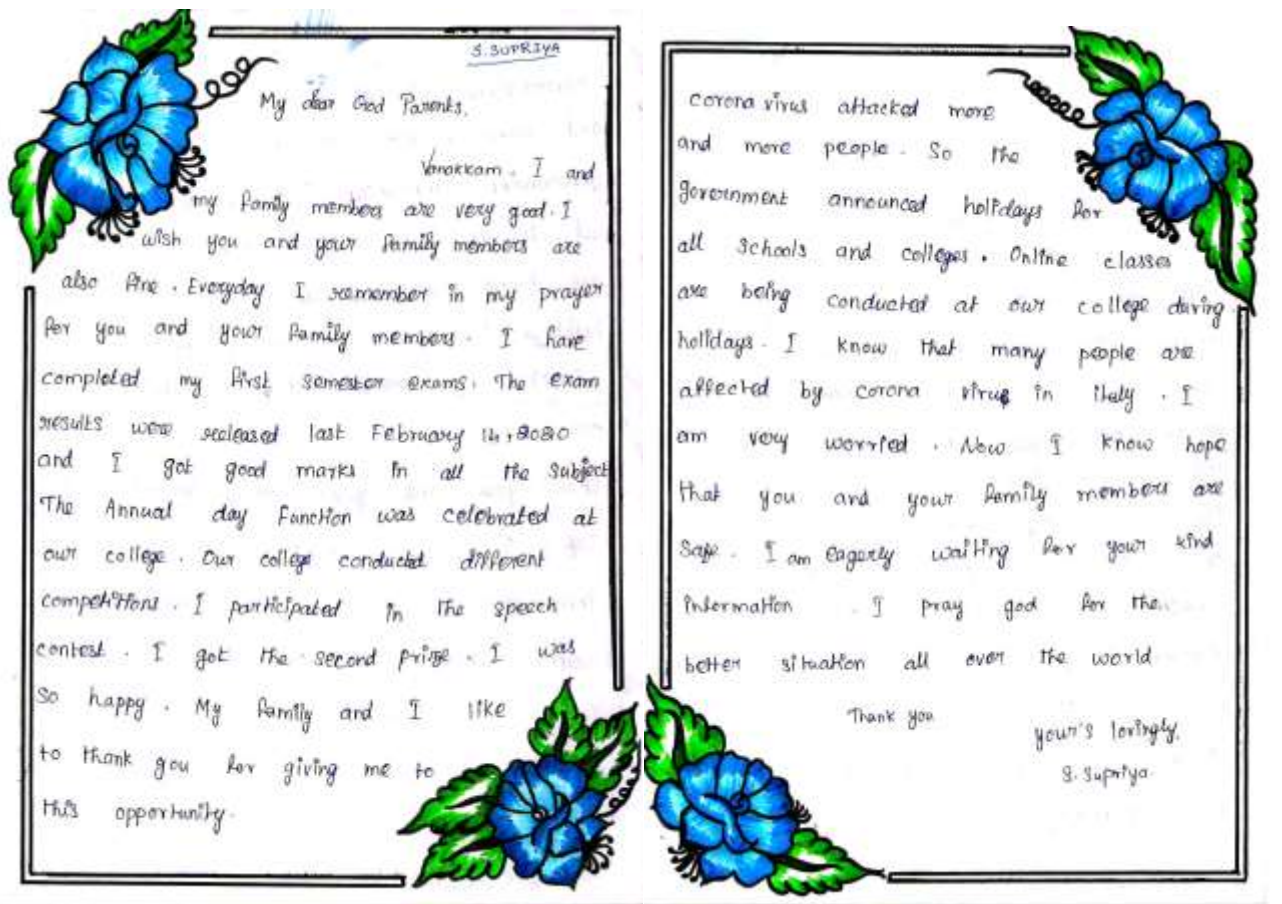 S. SUPRIYA
My dear God Parents,
Vanakkam. I and
my family members are very good. I
wish you and your family members are
also fine. Everyday I remember in my prayer
for you and your family members. I have
completed my first semester exams. The exam
results were released last February 14, 2020
and I got good marks in all the Subject
The Annual day Function was celebrated at
our college. Our college conducted different
competitions. I participated in the speech
contest. I got the second prize. I was
So happy. My family and I like
to thank you for giving me to
this opportunity.
corona virus attacked more
and more people. So the
government announced holidays for
all schools and colleges. Online classes
are being conducted at our college during
holidays. I know that many people are
affected by corona virus in itely. I
am very worried. Now I know hope
that you and your family members are
safe. I am eagerly waiting for your kind
information. I pray god for the
better situation all over the world
Thank you
your's lovingly,
S. Supriya.